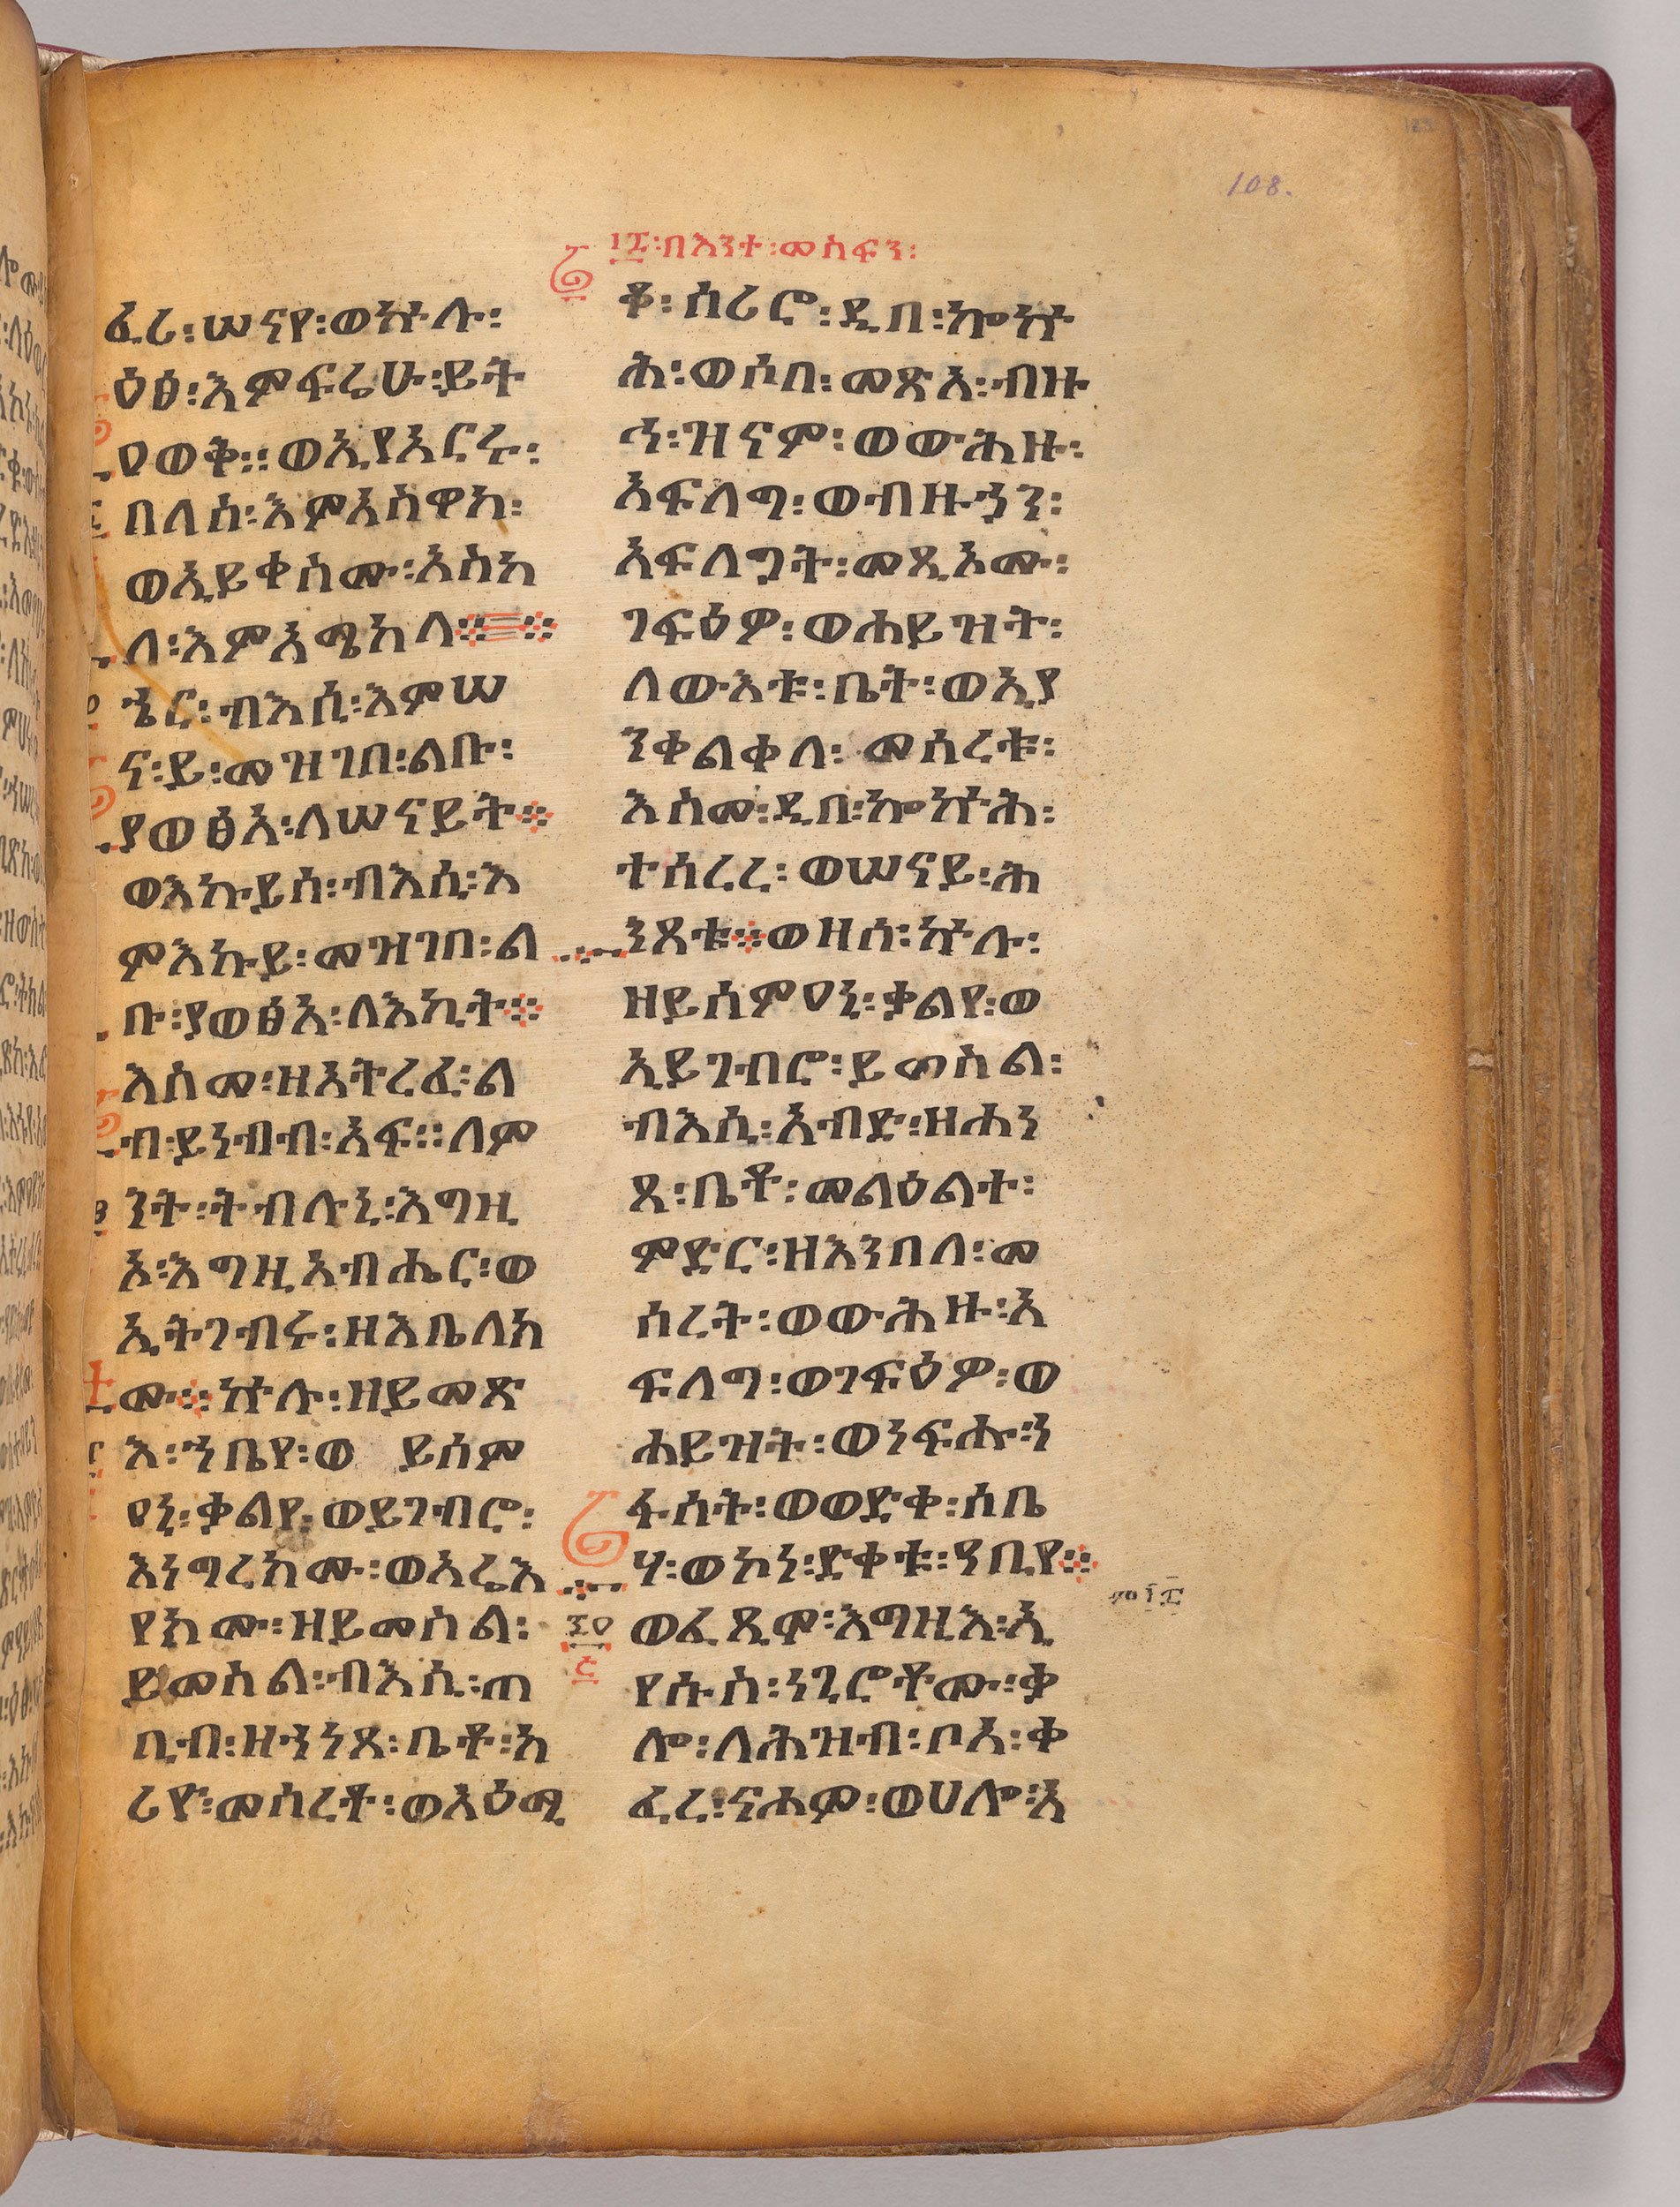 108.
፲፰፡በእንተ፡መስፍን፡
ፈሪ፡ሠናየ፡ወኵሉ፡
ዕፅ፡እምፍሬሁ፡ይት
ዐወቅ።ወኢየአርሩ፡
በለሰ፡እምአስዋክ፡
ወኢይቀስሙ፡አስካ
ለ፡እምአሜከላ፨
ኄር፡ብእሲ፡እምሠ
ና፡ይ፡መዝገበ፡ልቡ፡
ያወፅእ፡ለሠናይት፨
ወእኩይሰ፡ብእሲ፡እ
ምእኩይ፡መዝገበ፡ል
ቡ፡ያወፅእ፡ለእኪት፨
እስመ፡ዘእትረፈ፡ል
ብ፡ይነብብ፡አፍ።ለም
ንት፡ትብሉኒ፡እግዚ
ኦ፡እግዚአብሔር፡ወ
ኢትገብሩ፡ዘእቤለክ
ሙ፨ኵሉ፡ዘይመጽ
እ፡ኀቤየ፡ወ ይሰም
ዐኒ፡ቃልየ፡ወይገብሮ፡
እነግረክሙ፡ወአሬእ
የክሙ፡ዘይመስል፡
ይመስል፡ብእሴ፡ጠ
ቢብ፡ዘኀነጸ፡ቤቶ፡አ
ሪዮ፡መሰረቶ፡ወአዕሚ
ቆ፡ሰሪሮ፡ዲበ፡ኰኵ
ሕ፡ወሶበ፡መጽአ፡ብዙ
ኅ፡ዝናም፡ወውሕዙ፡
አፍላግ፡ወብዙኃን፡
አፍላጋት፡መጺኦሙ፡
ገፍዕዎ፡ወሐይዝት፡
ለውእቱ፡ቤት፡ወኢያ
ንቀልቀለ፡መሰረቱ፡
እስመ፡ዲበ፡ኰኵሕ፡
ተሰረረ፡ወሠናይ፡ሕ
ንጸቱ፨ወዘሰ፡ኵሉ፡
ዘይሰምዐኒ፡ቃልየ፡ወ
ኢይገብሮ፡ይመስል፡
ብእሴ፡አብድ፡ዘሐነ
ጸ፡ቤቶ፡መልዕልተ፡
ምድር፡ዘእንበለ፡መ
ሰረት፡ወውሕዙ፡አ
ፍላግ፡ወገፍዕዎ፡ወ
ሐይዝት፡ወነፍሑ፡ነ
ፋሳት፡ወወድቀ፡ሰቤ
ሃ፡ወኮነ፡ድቀቱ፡ዓቢየ፨
፷፭ ወፈጺሞ፡እግዚእ፡ኢ
የሱስ፡ነጊሮቶሙ፡ቃ
ሎ፡ለሕዝብ፡ቦአ፡ቅ
ፈረ፡ናሖም፡ወሀሎ፡አ